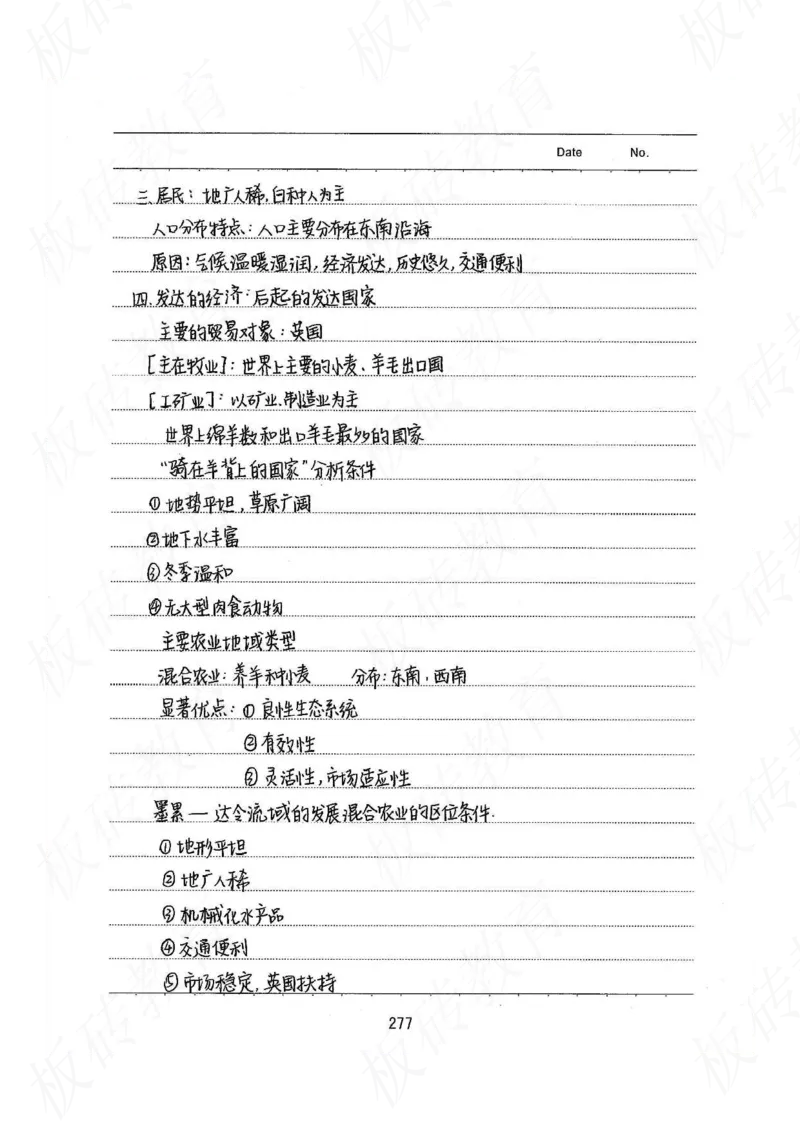 Date No.
三.居民：地广人稀，白种人为主
人口分布特点：人口主要分布在东南沿海
原因：气候温暖湿润，经济发达，历史悠久，交通便利
四.发达的经济：后起的发达国家
主要的贸易对象：英国
[主在牧业]：世界上主要的小麦、羊毛出口国
[工矿业]：以矿业、制造业为主
世界上绵羊数和出口羊毛最多的国家
“骑在羊背上的国家”分析条件
①地势平坦，草原广阔
②地下水丰富
③冬季温和
④无大型肉食动物
主要农业地域类型
混合农业：养羊和小麦 分布：东南，西南
显著优点：① 良性生态系统
②有效性
③ 灵活性，市场适应性
墨累一 达令流域的发展混合农业的区位条件.
①地形平坦
②地广人稀
③机械化水产品
④交通便利
⑤市场稳定，英国扶持
277
板砖教育